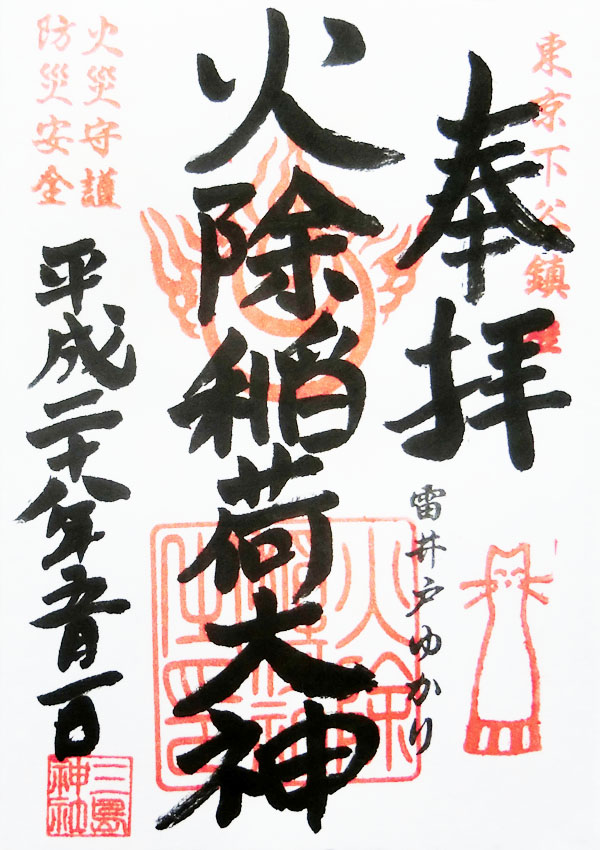 東京下谷鎮座
奉拝
雷井戸ゆかり
火除稲荷大神
火災守護
防災安全
平成二十八年五月一日
三島
神社